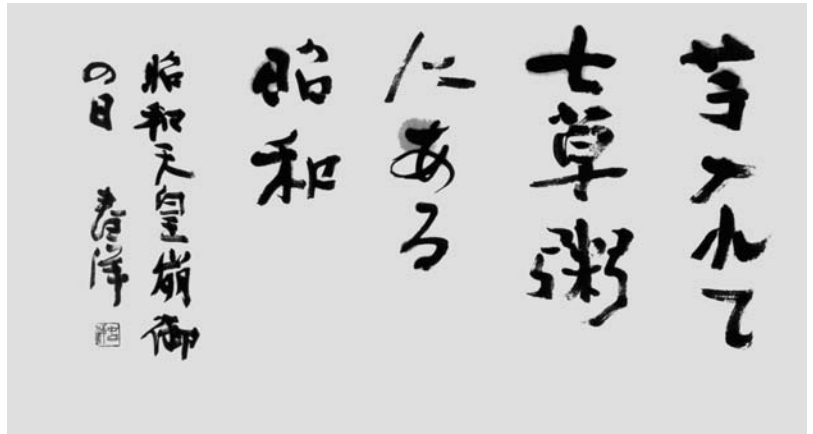 芋入れて
七草粥
にある
昭和
昭和天皇崩御
の日 春洋